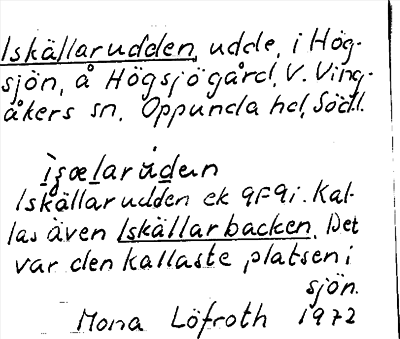 Iskällarudden, udde, i Hög-
sjön, å Högsjögård, V. Ving-
åkers sn, Oppunda hd, Södl.
Iskällarudden ek 9F9i. Kal-
las även Iskällarbacken. Det
var den kallaste platsen i
sjön.
Mona Löfroth 1972